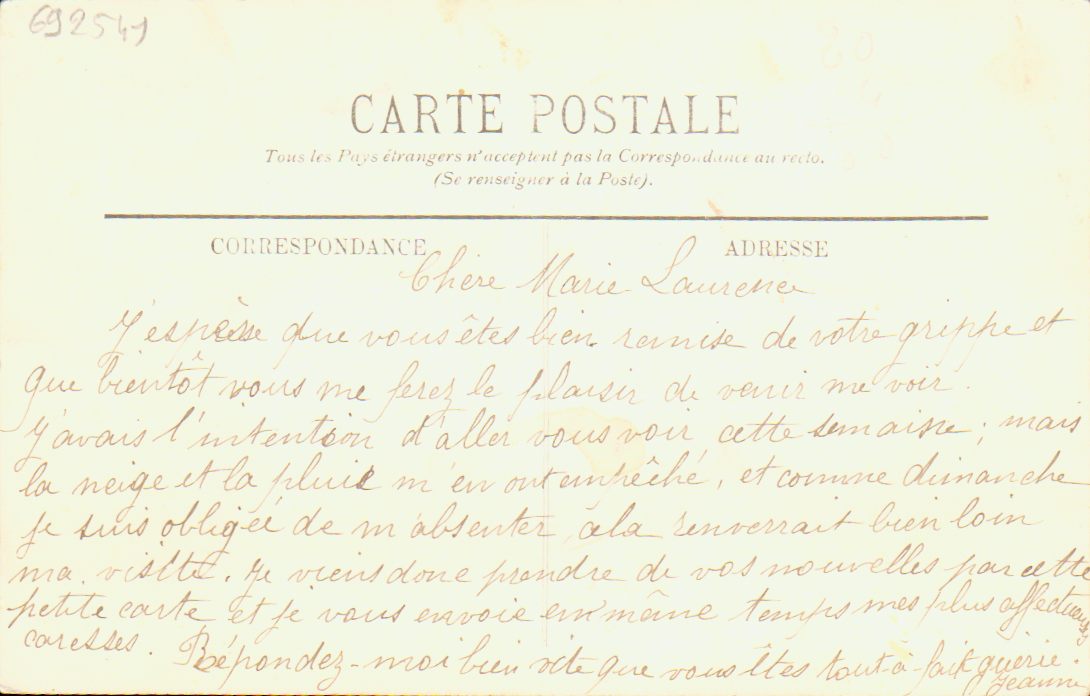 692541
CARTE POSTALE
Tous les Pays étrangers n'acceptent pas la Correspondance au recto.
(Se renseigner à la Poste).
CORRESPONDANCE ADRESSE
Chère Marie Laurence
J'espère que vous êtes bien remise de votre grippe et
que bientôt vous me ferez le plaisir de venir me voir.
J'avais l'intention d'aller vous voir cette semaine ; mais
la neige et la pluie m'en ont empêché, et comme dimanche
je suis obligée de m'absenter, cela renverrait bien loin
ma visite. Je viens donc prendre de vos nouvelles par cette
petite carte et je vous envoie en même temps mes plus affectueuses
caresses. Répondez-moi bien vite que vous êtes tout-à-fait guérie.
Jeanne